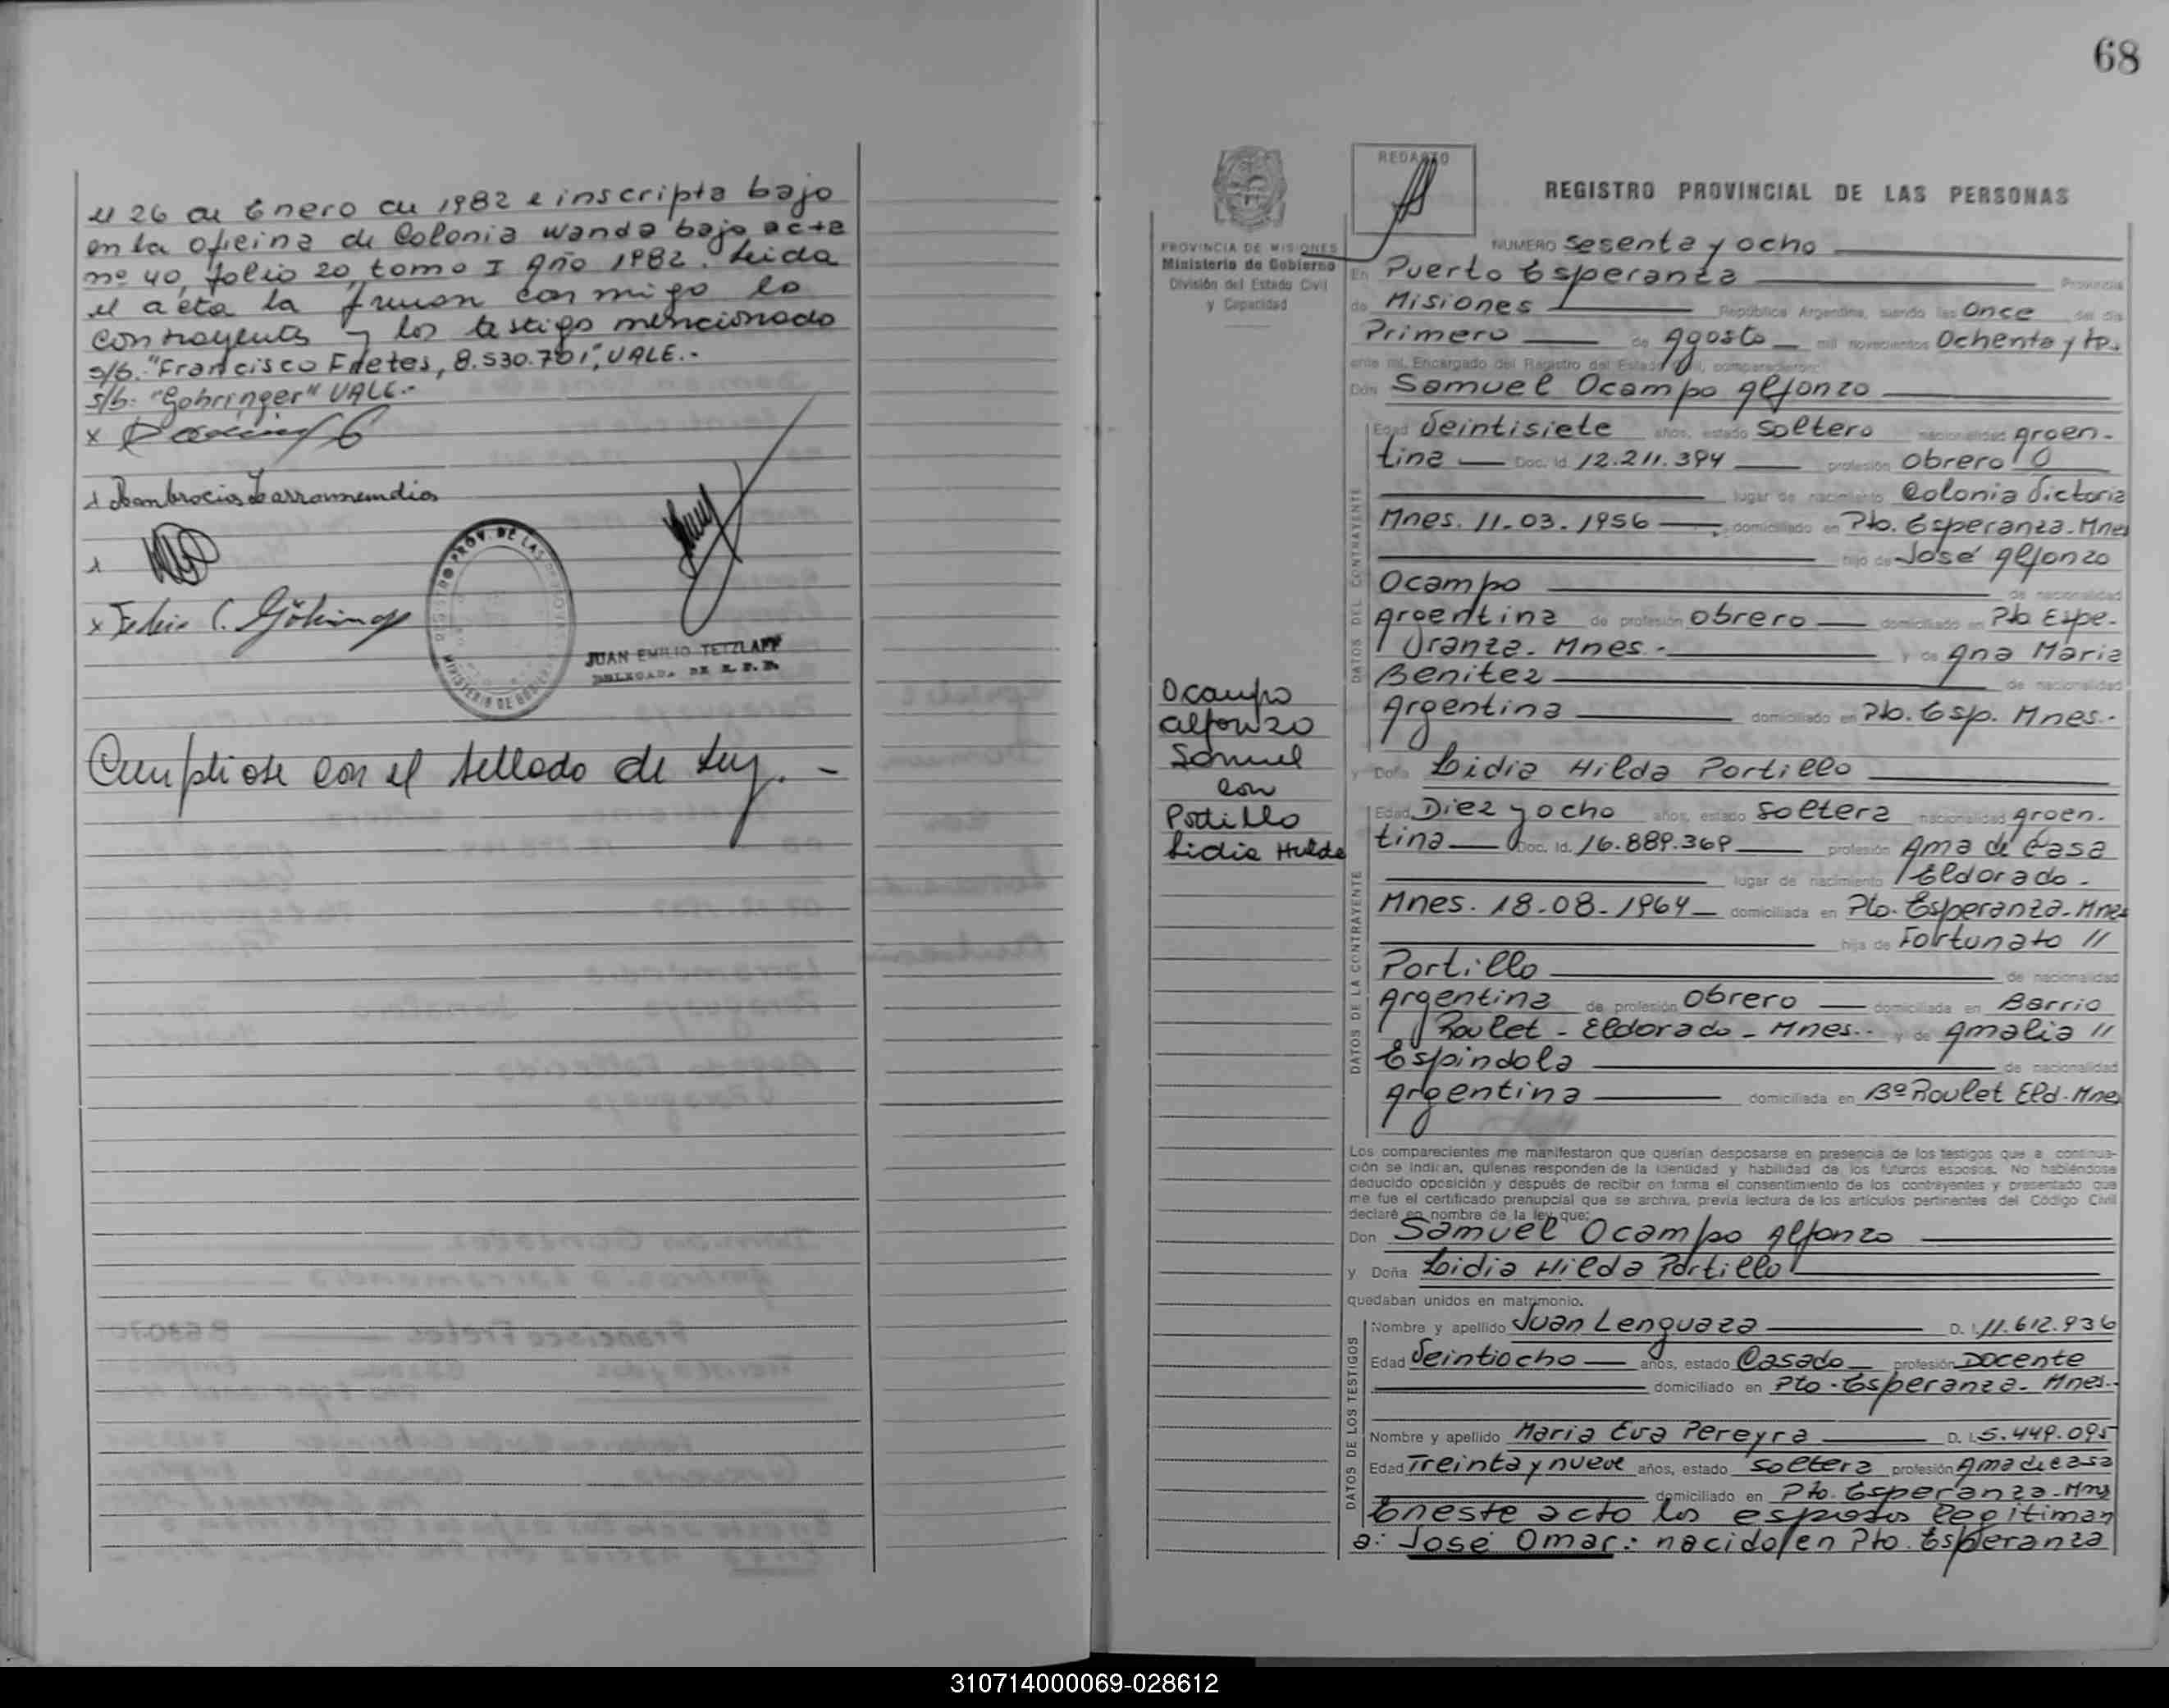 el 26 de Enero de 1982 e inscripta bajo
en la oficina de Colonia Wanda bajo acta
nº 40, folio 20, tomo I Año 1982. Leida
el acta la firman conmigo lo
contrayentes y los testigo mencionado
s/b. "Francisco Fretes, 8.530.701", VALE.-
s/b: "Gohringer" VALE.-
x
x Larramendia
x
x
REGISTRO PROV. DE LAS
MINISTERIO DE
JUAN EMILIO TETZLAFF
DELEGADA DE R. P. P.
Cumpliose con el sellado de Ley. -
68
PROVINCIA DE MISIONES
Ministerio de Gobierno
División del Estado Civil
y Capacidad
REDACTO
REGISTRO PROVINCIAL DE LAS PERSONAS
NUMERO sesenta y ocho
En Puerto Esperanza Provincia
de Misiones República Argentina, siendo las Once del dia
Primero de Agosto mil novecientos Ochenta y
ante mi, Encargado del Registro del Estado Civil, comparecieron:
Don Samuel Ocampo Alfonzo
Edad Veintisiete años, estado Soltero nacionalidad Argen-
tina Doc. Id. 12.211.394 profesión Obrero
lugar de nacimiento Colonia Victoria
Mnes. 11.03.1956 domiciliado en Pto. Esperanza-Mnes
hijo de José Alfonzo
Ocampo de nacionalidad
Argentina de profesión Obrero domiciliado en Pto Espe-
ranza. Mnes.- y de Ana Maria
Benitez de nacionalidad
Argentina domiciliado en Pto. Esp. Mnes.-
y Doña Lidia Hilda Portillo
Edad Diez y ocho años, estado Soltera nacionalidad Argen.
tina Doc. Id. 16.889.369 profesión Ama de Casa
lugar de nacimiento Eldorado -
Mnes. 18-08-1964 domiciliada en Pto. Esperanza-Mnes
hija de Fortunato //
Portillo de nacionalidad
Argentina de profesión Obrero domiciliada en Barrio
Roulet - Eldorado - Mnes.- y de Amalia //
Espindola de nacionalidad
Argentina domiciliada en Bº Roulet Eld. Mnes
DATOS DEL CONTRAYENTE
DATOS DE LA CONTRAYENTE
Ocampo
Alfonzo
Samuel
con
Portillo
Lidia Hilda
Los comparecientes me manifestaron que querían desposarse en presencia de los testigos que a continua-
ción se indican, quienes responden de la identidad y habilidad de los futuros esposos. No habiéndose
deducido oposición y después de recibir en forma el consentimiento de los contrayentes y presentado que
me fue el certificado prenupcial que se archiva, previa lectura de los artículos pertinentes del Código Civil
declaré en nombre de la ley que:
Don Samuel Ocampo Alfonzo
y Doña Lidia Hilda Portillo
quedaban unidos en matrimonio.
DATOS DE LOS TESTIGOS
Nombre y apellido Juan Lenguaza D. I. 11.612.936
Edad Veintiocho años, estado Casado profesión Docente
domiciliado en Pto. Esperanza - Mnes.-
Nombre y apellido Maria Eva Pereyra D. I. 5.449.095
Edad Treinta y nueve años, estado Soltera profesión Ama de casa
domiciliado en Pto. Esperanza - Mns
En este acto los esposos legitiman
a: José Omar: nacido en Pto. Esperanza
310714000069-028612